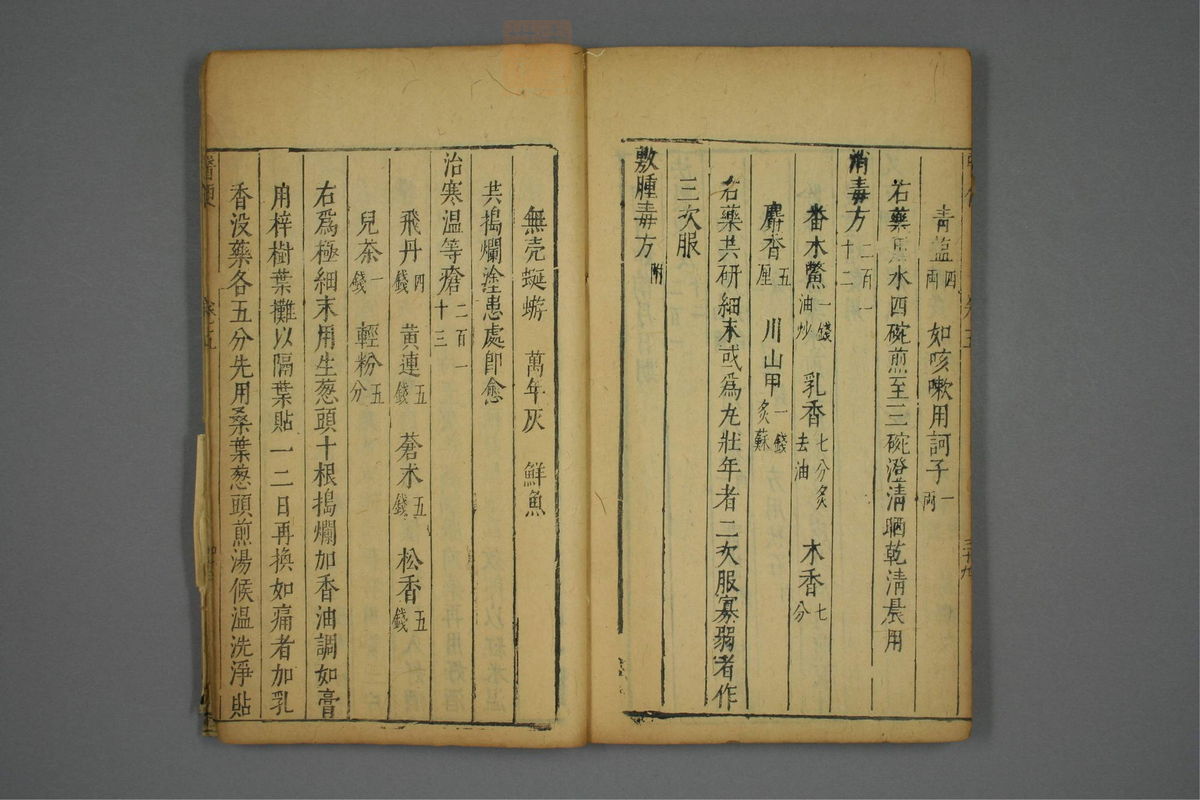 青鹽四兩 如咳嗽用訶子一兩
右藥用水四碗煎至三碗澄清晒乾清晨用
消毒方二百一十二
番木鱉一錢油炒 乳香七分炙去油 木香七分
麝香五厘 川山甲一錢炙蘇
右藥共研細末或爲丸壯年者二次服寡弱者作
三次服
敷腫毒方附
無壳蜒蝣 萬年灰 鮮魚
共搗爛塗患處即愈
治寒濕等瘡二百一十三
飛丹四錢 黃連五錢 蒼朮五錢 松香五錢
兒茶一錢 輕粉五分
右爲極細末用生葱頭十根搗爛加香油調如膏
用梓樹葉攤以隔葉貼一二日再換如痛者加乳
香没藥各五分先用桑葉葱頭煎湯候溫洗淨貼